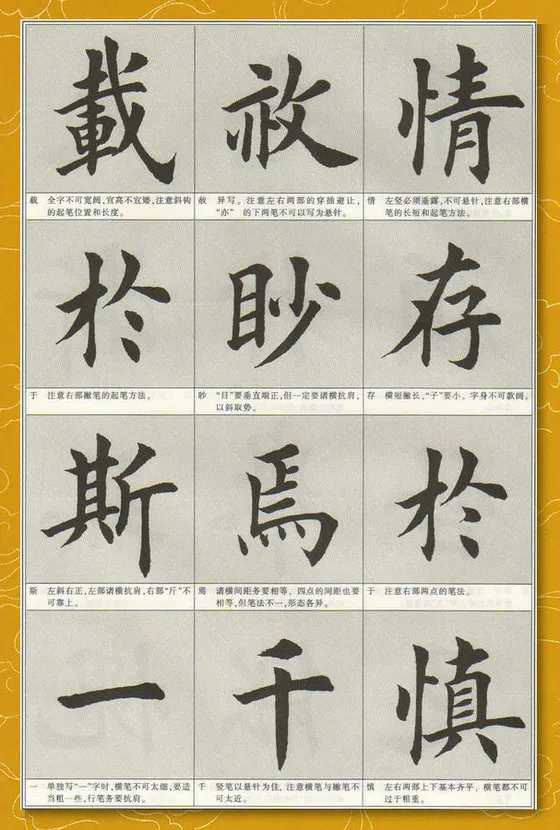 載 敘 情
載 全字不可宽阔,宜高不宜矮,注意斜钩
的起笔位置和长度。
赦 异写。注意左右两部的穿插避让,
“亦” 的下两笔不可以写为悬针。
情 左竖必须垂露,不可悬针,注意右部横
笔的长短和起笔方法。
於 眇 存
于 注意右部撇笔的起笔方法。
眇 “目”要垂直端正,但一定要诸横抗肩,
以斜取势。
存 横短撇长,“子”要小。字身不可款阔。
斯 焉 於
斯 左斜右正,左部诸横抗肩,右部“斤”不
可靠上。
焉 诸横间距务要相等, 四点的间距也要
相等,但笔法不一,形态各异。
于 注意右部两点的笔法。
一 千 慎
一 单独写“一”字时,横笔不可太细,要适
当粗一些,行笔务要抗肩。
千 竖笔以悬针为佳, 注意横笔与撇笔不
可太近。
慎 左右两部上下基本齐平, 横笔都不可
过于粗重。